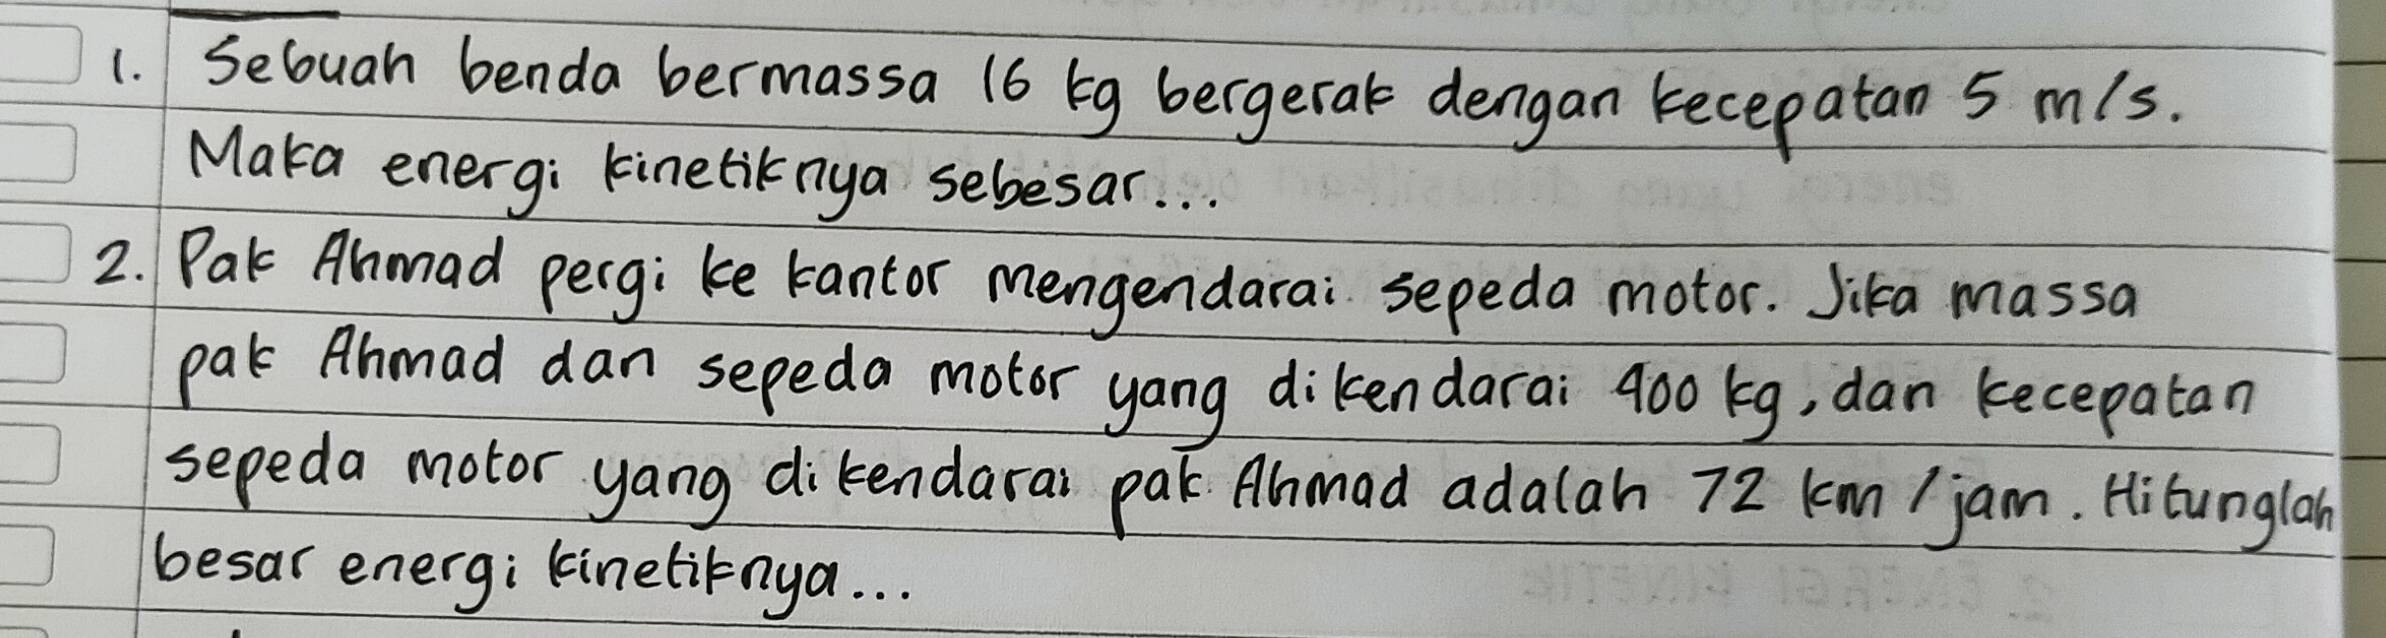 1. Sebuah benda bermassa 16 kg bergerak dengan kecepatan 5 m/s.
Maka energi kinetiknya sebesar...
2. Pak Ahmad pergi ke kantor mengendarai sepeda motor. Jika massa
pak Ahmad dan sepeda motor yang dikendarai 400 kg, dan kecepatan
sepeda motor yang dikendarai pak Ahmad adalah 72 km/jam. Hitunglah
besar energi kinetiknya...